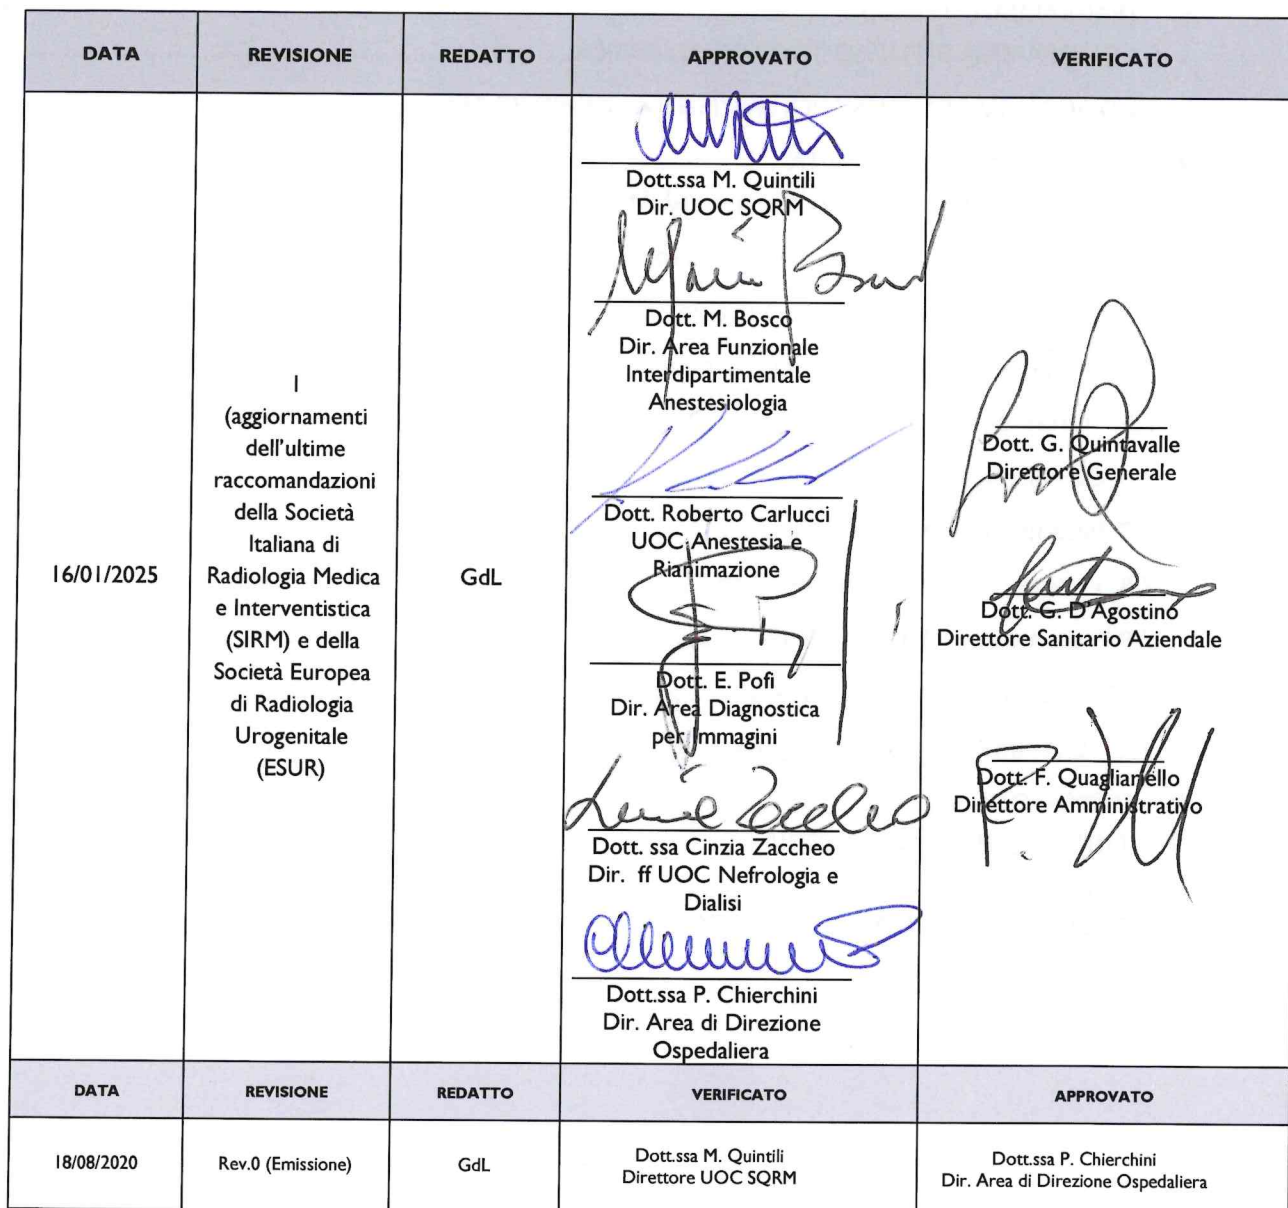 DATA REVISIONE REDATTO APPROVATO VERIFICATO
16/01/2025
1
(aggiornamenti
dell'ultime
raccomandazioni
della Società
Italiana di
Radiologia Medica
e Interventistica
(SIRM) e della
Società Europea
di Radiologia
Urogenitale
(ESUR)
GdL
Dott.ssa M. Quintili
Dir. UOC SQRM
Dott. M. Bosco
Dir. Area Funzionale
Interdipartimentale
Anestesiologia
Dott. Roberto Carlucci
UOC Anestesia e
Rianimazione
Dott. E. Pofi
Dir. Area Diagnostica
per Immagini
Dott. ssa Cinzia Zaccheo
Dir. ff UOC Nefrologia e
Dialisi
Dott.ssa P. Chierchini
Dir. Area di Direzione
Ospedaliera
Dott. G. Quintavalle
Direttore Generale
Dott. G. D'Agostino
Direttore Sanitario Aziendale
Dott. F. Quaglianello
Direttore Amministrativo
DATA REVISIONE REDATTO VERIFICATO APPROVATO
18/08/2020
Rev.0 (Emissione)
GdL
Dott.ssa M. Quintili
Direttore UOC SQRM
Dott.ssa P. Chierchini
Dir. Area di Direzione Ospedaliera